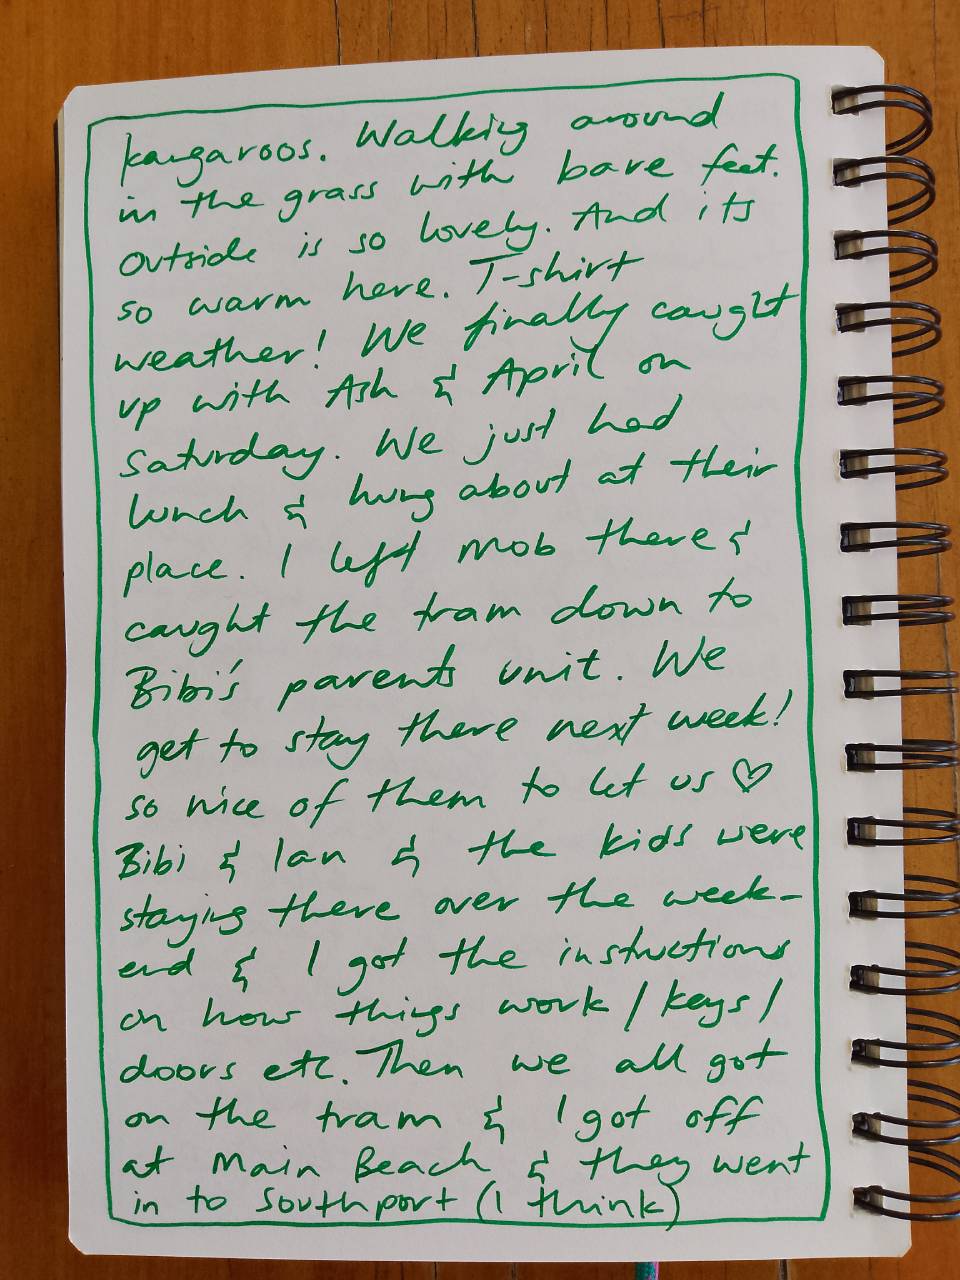 kangaroos. Walking around
in the grass with bare feet.
Outside is so lovely. And its
so warm here. T-shirt
weather! We finally caught
up with Ash & April on
Saturday. We just had
lunch & hung about at their
place. I left Mob there &
caught the tram down to
Bibi's parents unit. We
get to stay there next week!
so nice of them to let us ♡
Bibi & Ian & the kids were
staying there over the week-
end & I got the instructions
on how things work / keys /
doors etc. Then we all got
on the tram & I got off
at Main Beach & they went
in to Southport (I think)